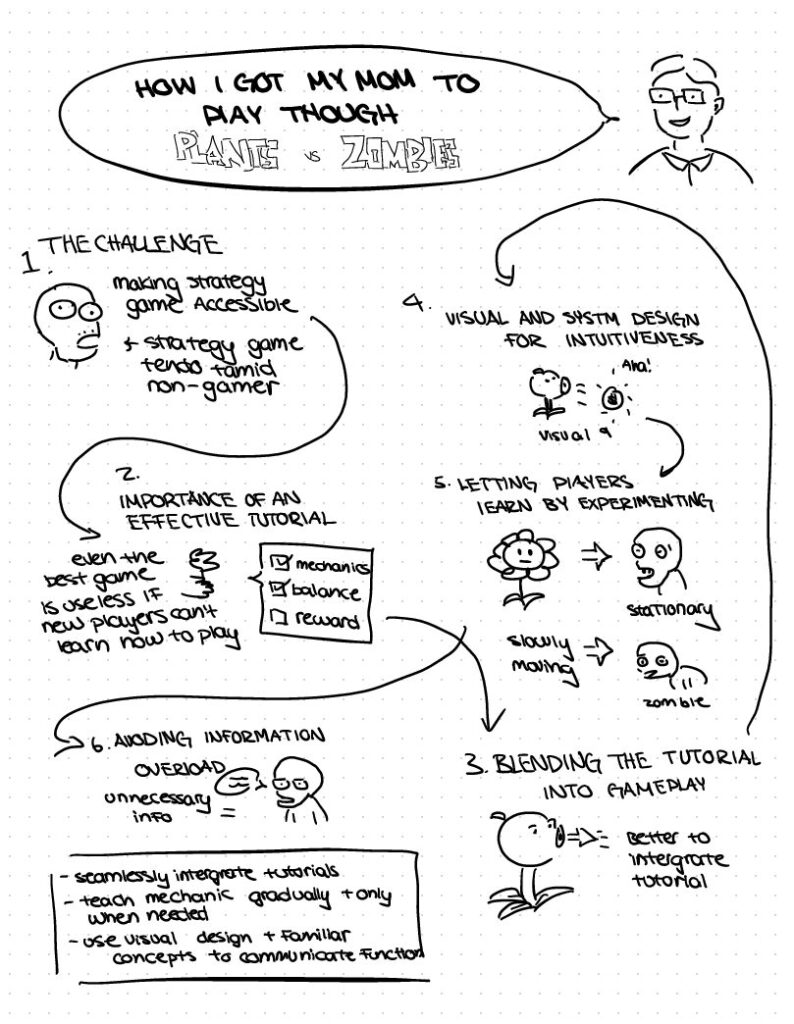 HOW I GOT MY MOM TO
PLAY THOUGH
PLANTS vs ZOMBIES
1. THE CHALLENGE
making strategy
game Accessible
+ strategy game
tendo tamid
non-gamer
2.
IMPORTANCE OF AN
EFFECTIVE TUTORIAL
even the
best game
is useless if
new players can't
learn how to play
mechanics
balance
reward
3. BLENDING THE TUTORIAL
INTO GAMEPLAY
Better to
intergrate
tutorial
4.
VISUAL AND SYSTM DESIGN
FOR INTUITIVENESS
Aha!
visual
5. LETTING PLAYERS
LEARN BY EXPERIMENTING
stationary
slowly
moving
zombie
6. AVODING INFORMATION
OVERLOAD
unnecessary
info
- seamlessly intergrate tutorials
- teach mechanic gradually + only
when needed
- use visual design + familiar
concepts to communicate function